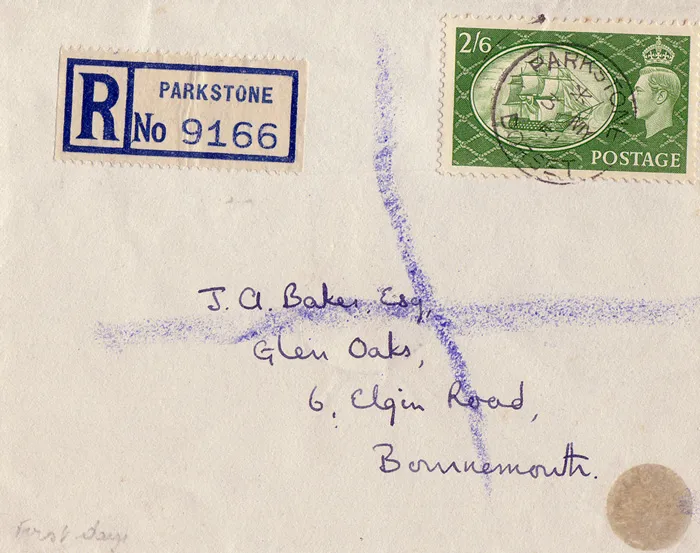 2/6
POSTAGE
PARKSTONE
DORSET
R
PARKSTONE
No 9166
J. A. Baker Esq,
Glen Oaks,
6, Elgin Road,
Bournemouth.
First day